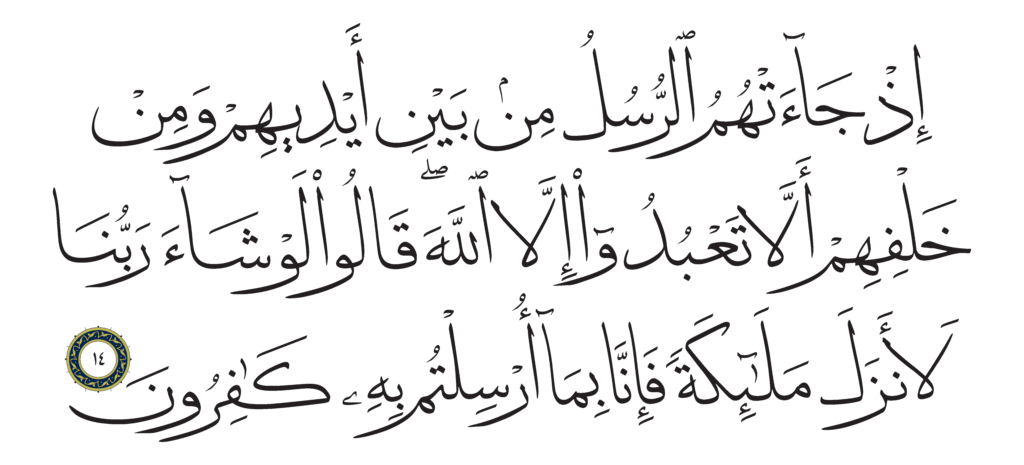 إِذْ جَآءَتْهُمُ ٱلرُّسُلُ مِنۢ بَيْنِ أَيْدِيهِمْ وَمِنْ
خَلْفِهِمْ أَلَّا تَعْبُدُوٓا۟ إِلَّا ٱللَّهَ ۖ قَالُوا۟ لَوْ شَآءَ رَبُّنَا
لَأَنزَلَ مَلَـٰٓئِكَةً فَإِنَّا بِمَآ أُرْسِلْتُم بِهِۦ كَـٰفِرُونَ ١٤